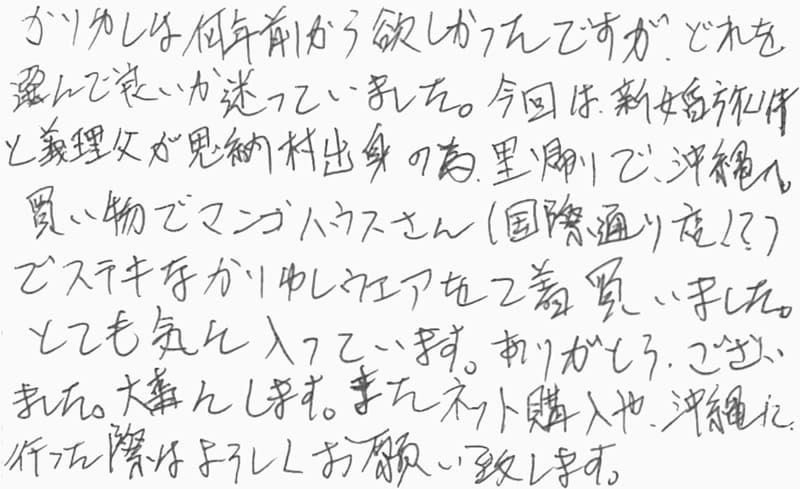 かりゆしは何年前から欲しかったんですが、どれを
選んで良いか迷っていました。今回は、新婚旅行
と義理父が恩納村出身の為、里帰りで、沖縄へ。
買い物でマンゴハウスさん(国際通り店!?)
でステキなかりゆしウエアを2着買いました。
とても気に入っています。ありがとう、ござい
ました。大事にします。またネット購入や、沖縄に
行った際はよろしくお願い致します。